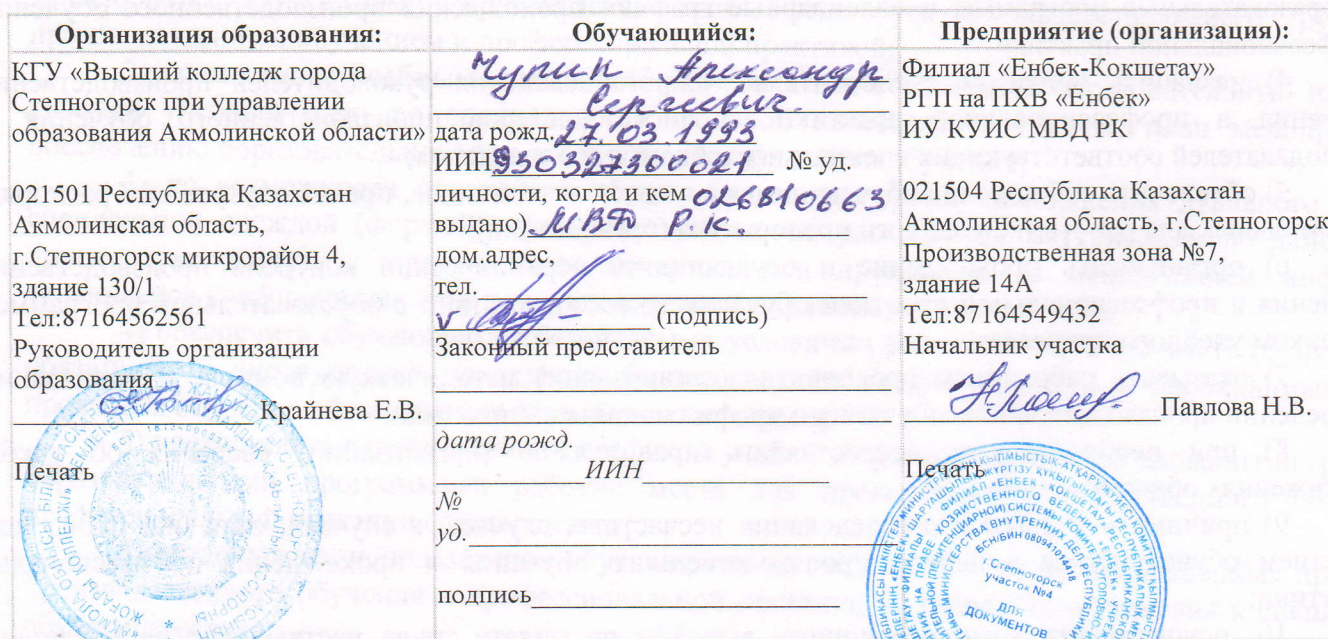 Организация образования:
КГУ «Высший колледж города
Степногорск при управлении
образования Акмолинской области»
021501 Республика Казахстан
Акмолинская область,
г.Степногорск микрорайон 4,
здание 130/1
Тел:87164562561
Руководитель организации
образования
Крайнева Е.В.
Печать
Обучающийся:
Чупин Александр
Сергеевич
дата рожд. 27.03 1993
ИИН 930327300021 № уд.
личности, когда и кем 026810663
выдано) МВД Р.К.
дом.адрес,
тел.
v (подпись)
Законный представитель
дата рожд.
ИИН
№
уд.
подпись
Предприятие (организация):
Филиал «Енбек-Кокшетау»
РГП на ПХВ «Енбек»
ИУ КУИС МВД РК
021504 Республика Казахстан
Акмолинская область, г.Степногорск
Производственная зона №7,
здание 14А
Тел:87164549432
Начальник участка
Павлова Н.В.
Печать
Степногорск
участок №4
ДЛЯ
ДОКУМЕНТОВ